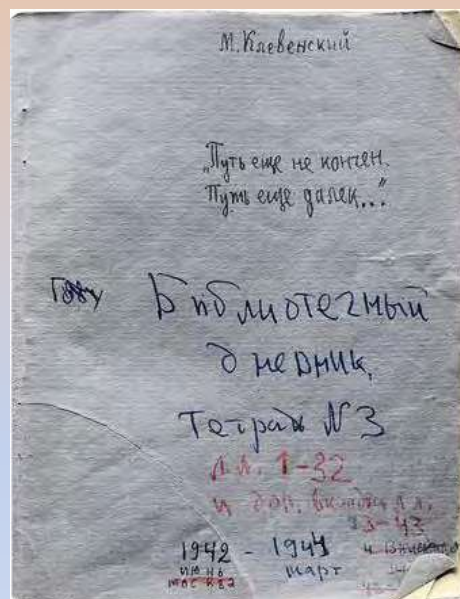 М. Клевенский
„Путь еще не кончен.
Путь еще далек..."
Библиотечный
дневник,
Тетрадь № 3
л.л. 1-32
и доп.
33-43
1942 - 1944
июнь март
Москва